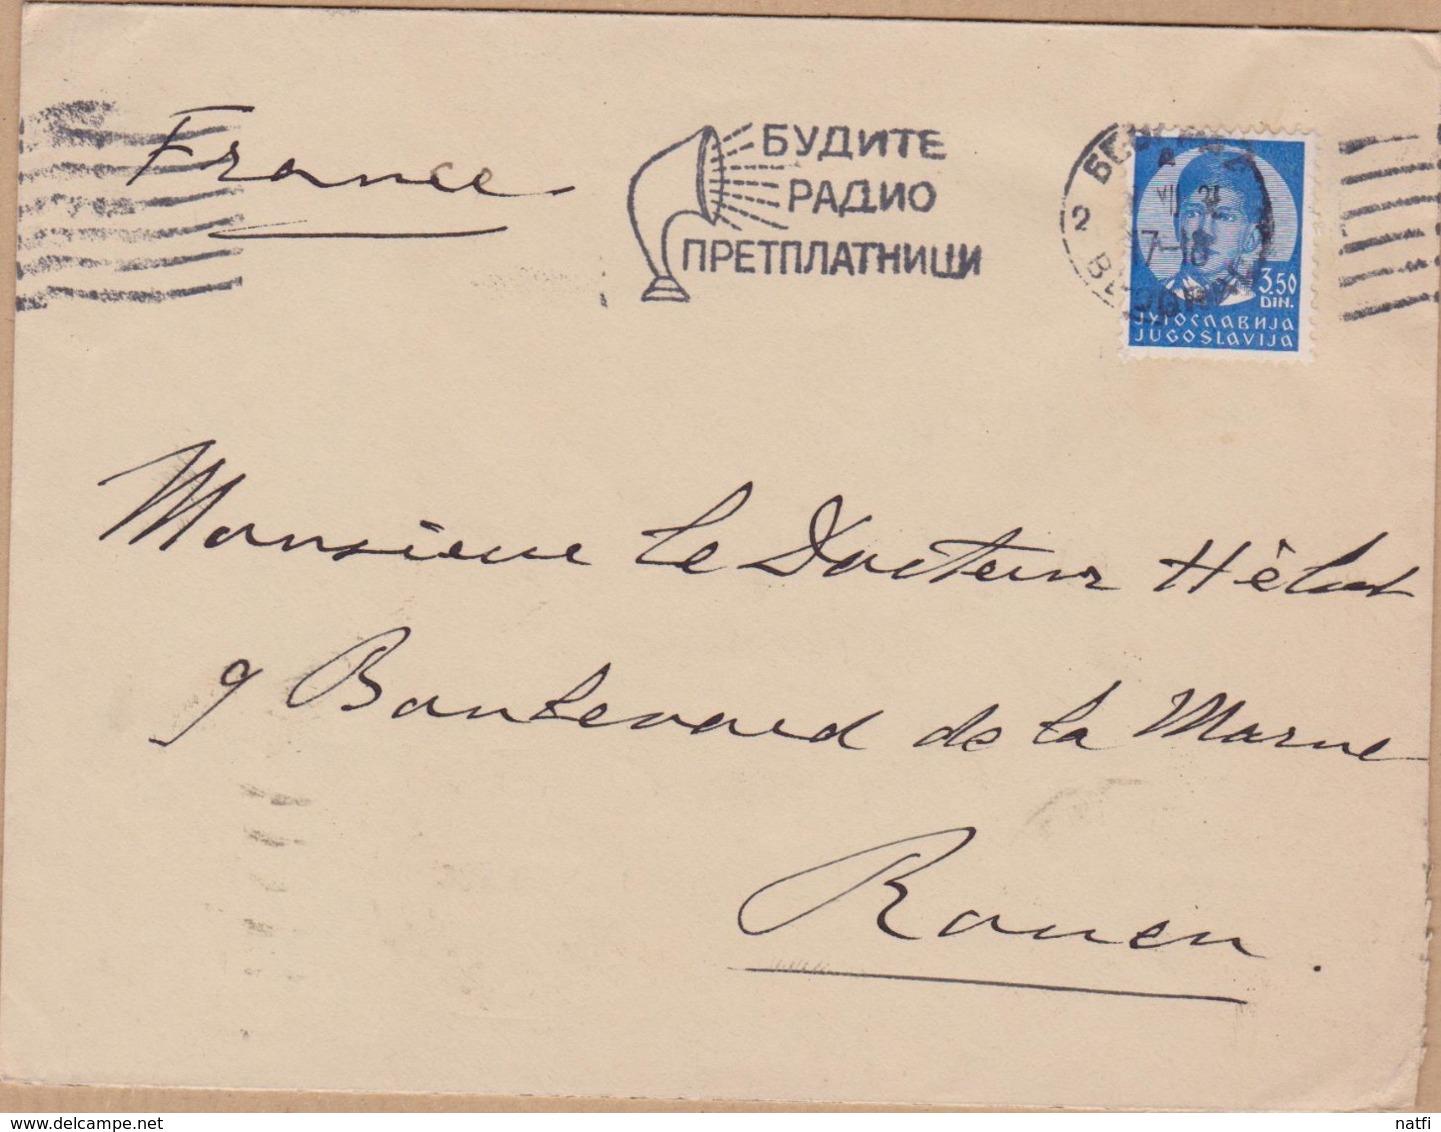 France
БУДИТЕ
РАДИО
ПРЕТПЛАТНИЦИ
2
17-18
3.50
DIN.
ЈУГОСЛАВИЈА
JUGOSLAVIJA
Monsieur Le Docteur Hélot
9 Boulevard de la Marne
Rouen.
www.delcampe.net
natfi